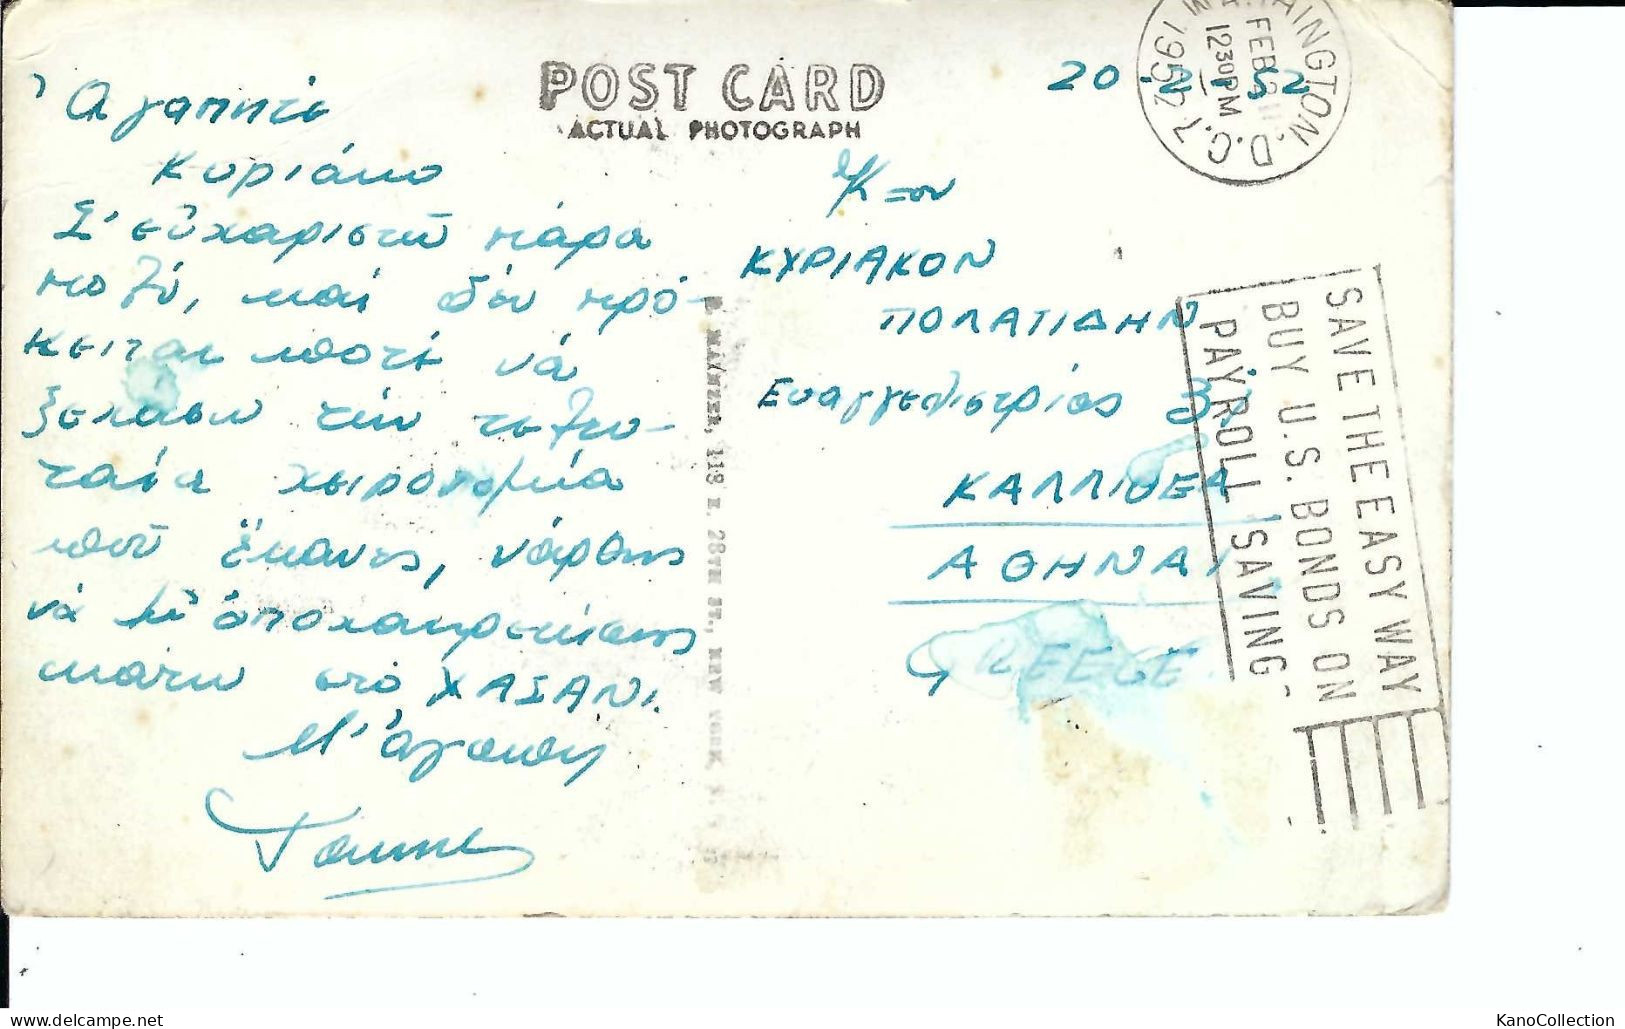 POST CARD
ACTUAL PHOTOGRAPH
20.2.52
WASHINGTON. D.C. 7
FEB 21
12 30 PM
1952
Ἀγαπητέ
Κυριάκο
Σ' εὐχαριστῶ πάρα
πολύ, καί δέν πρό-
κειται ποτέ νά
ξεχάσω τήν τελευ-
ταία χειρονομία
ποῦ ἔκανες, νάρθης
νά μέ ἀποχαιρετίσης
κάτω στό ΧΑΣΑΝΙ.
Μ' ἀγάπη
ΚΥΡΙΑΚΟΝ
ΠΟΛΑΤΙΔΗΝ
Ευαγγελιστρίας
ΚΑΛΛΙΘΕΑ
ΑΘΗΝΑΙ
GREECE.
SAVE THE EASY WAY
BUY U.S. BONDS ON
PAYROLL SAVING
118 E. 28TH ST., NEW YORK
KanoCollection